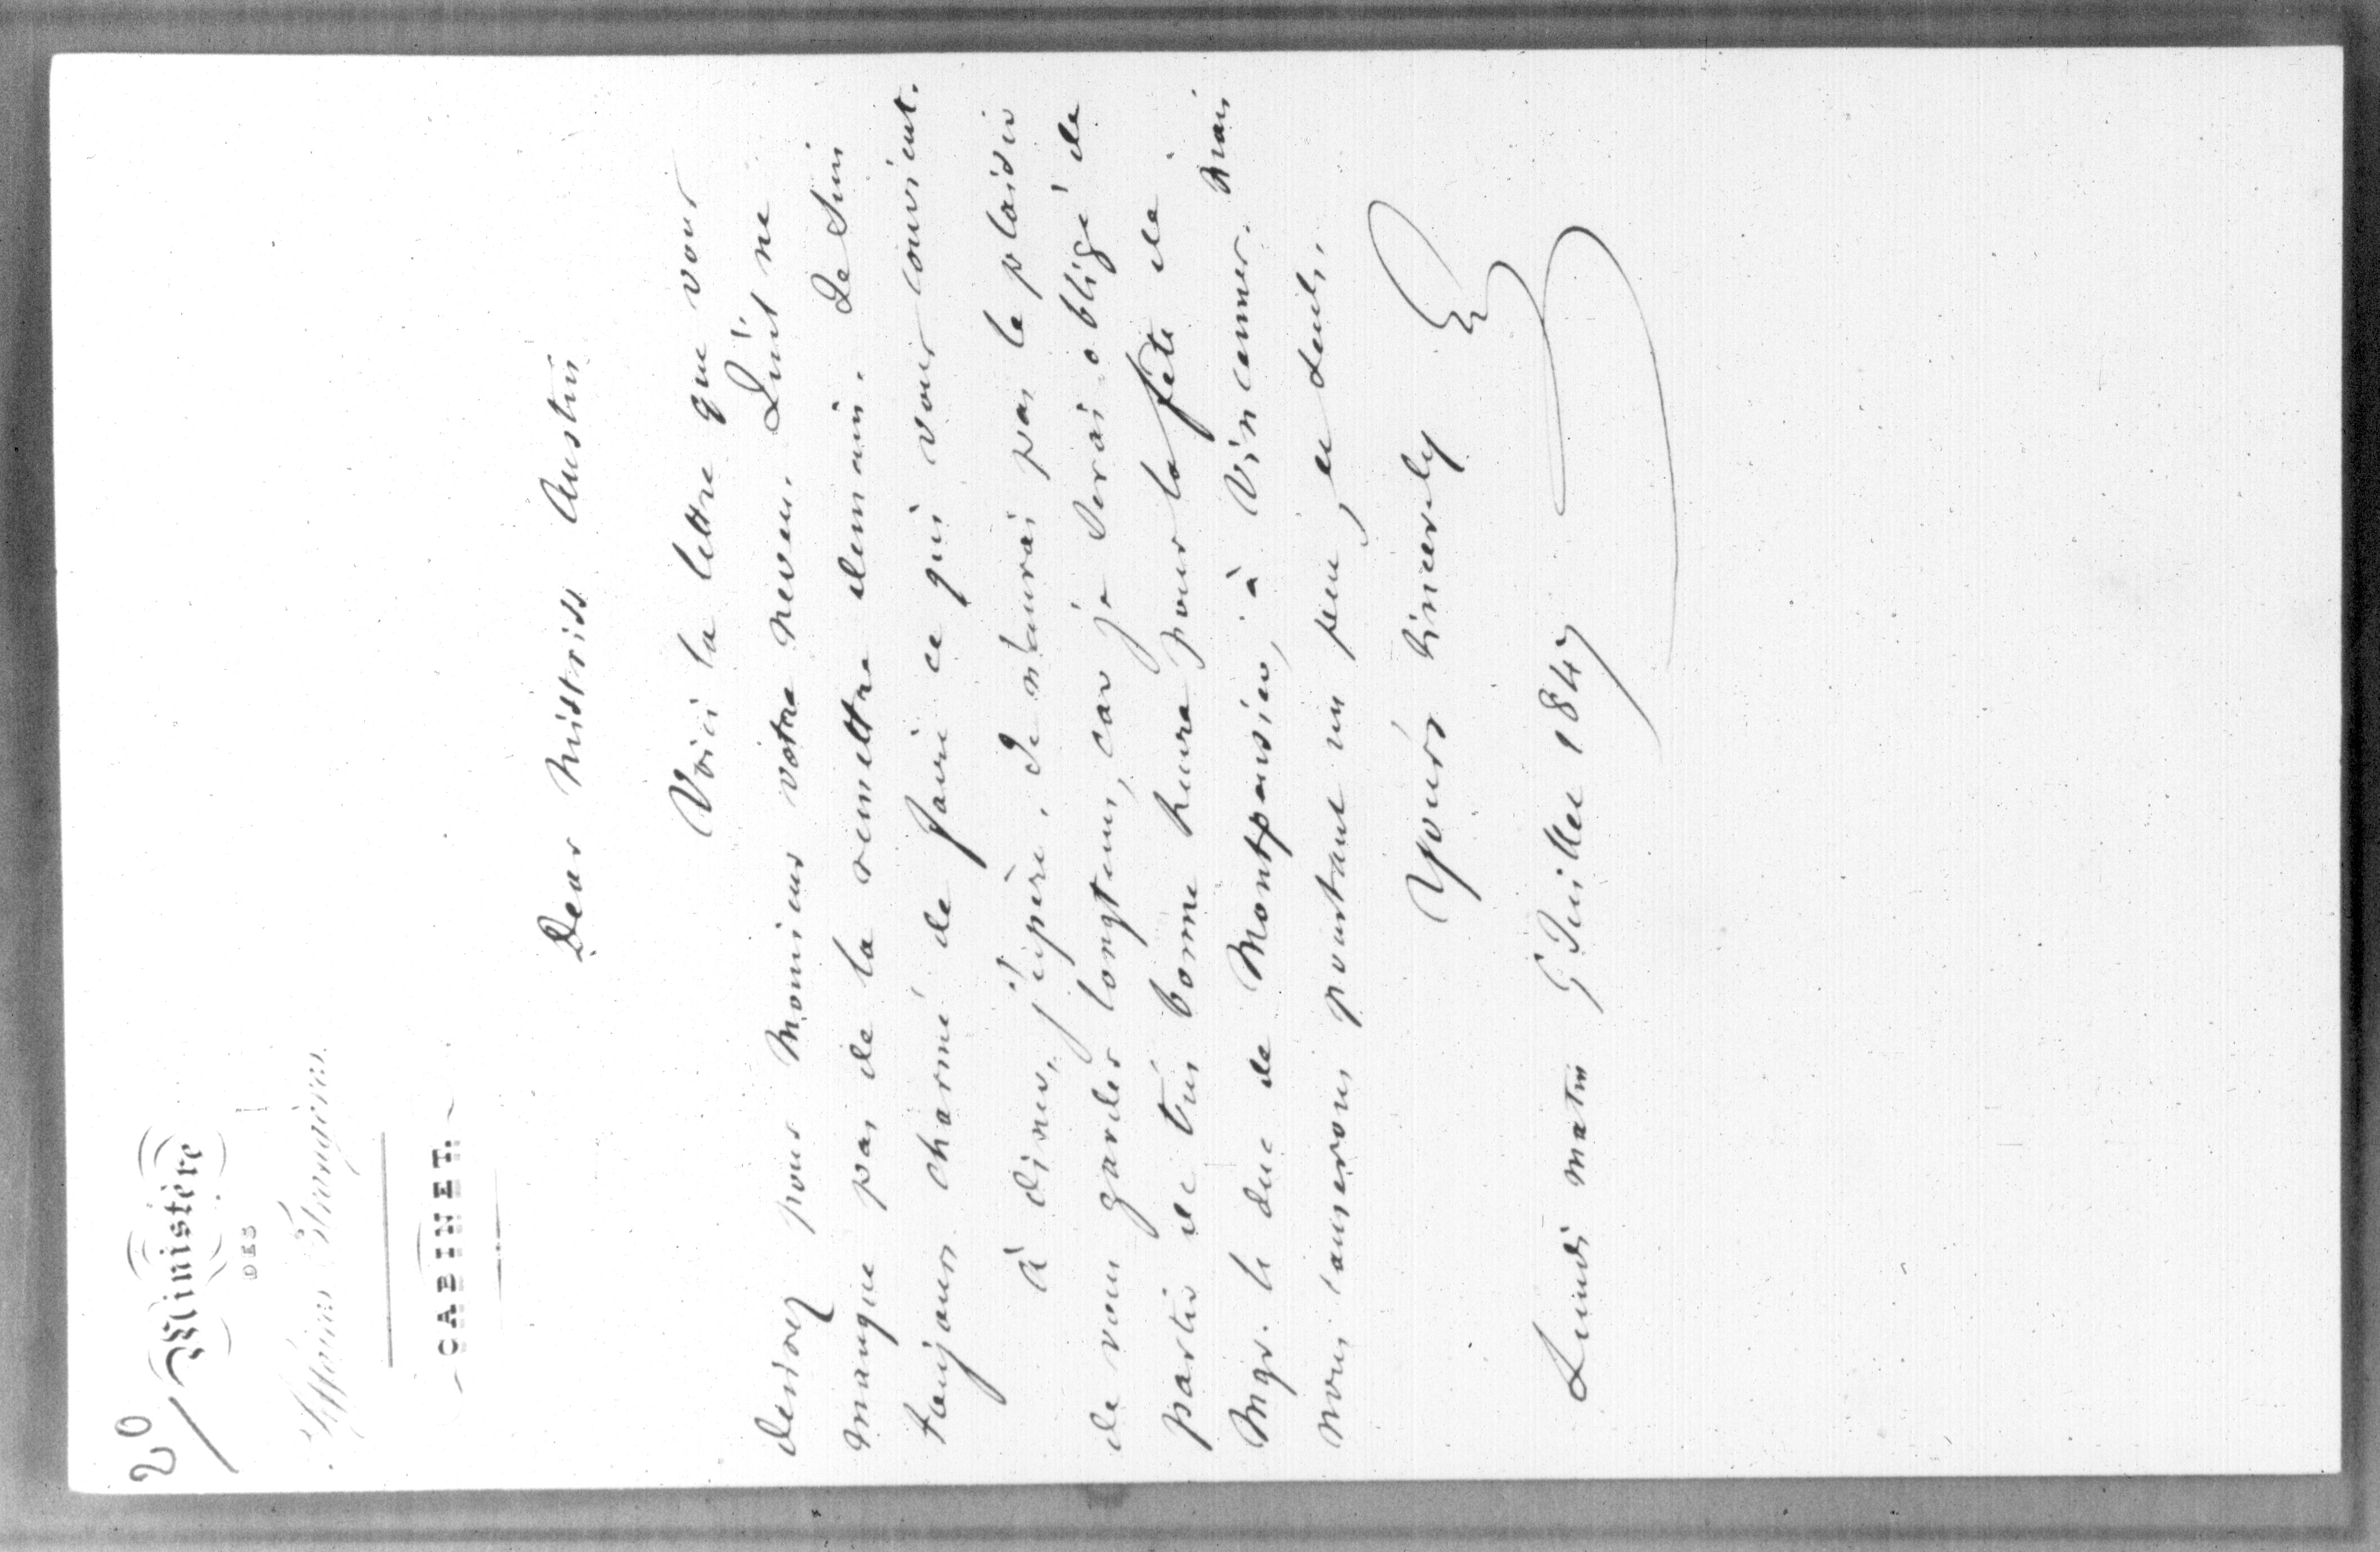 20
Ministère
DES
Affaires Étrangères.
CABINET.
Dear Mistriss Austin
Voici la lettre que vous
desirez pour Monsieur votre neveu. Qu'il ne
manque pas de la remettre demain. Je suis
toujours charmé de faire ce qui vous convient.
à diner, j'espère. Je n'aurai pas le plaisir
de vous garder longtems, car je serai obligé de
partir de très bonne heure pour la fête de
Mgr. le duc de Montpensier, à Vincennes. Mais
nous causerons pourtant un peu, et seuls.
Yours sincerely
G
Lundi matin 5 Juillet 1847